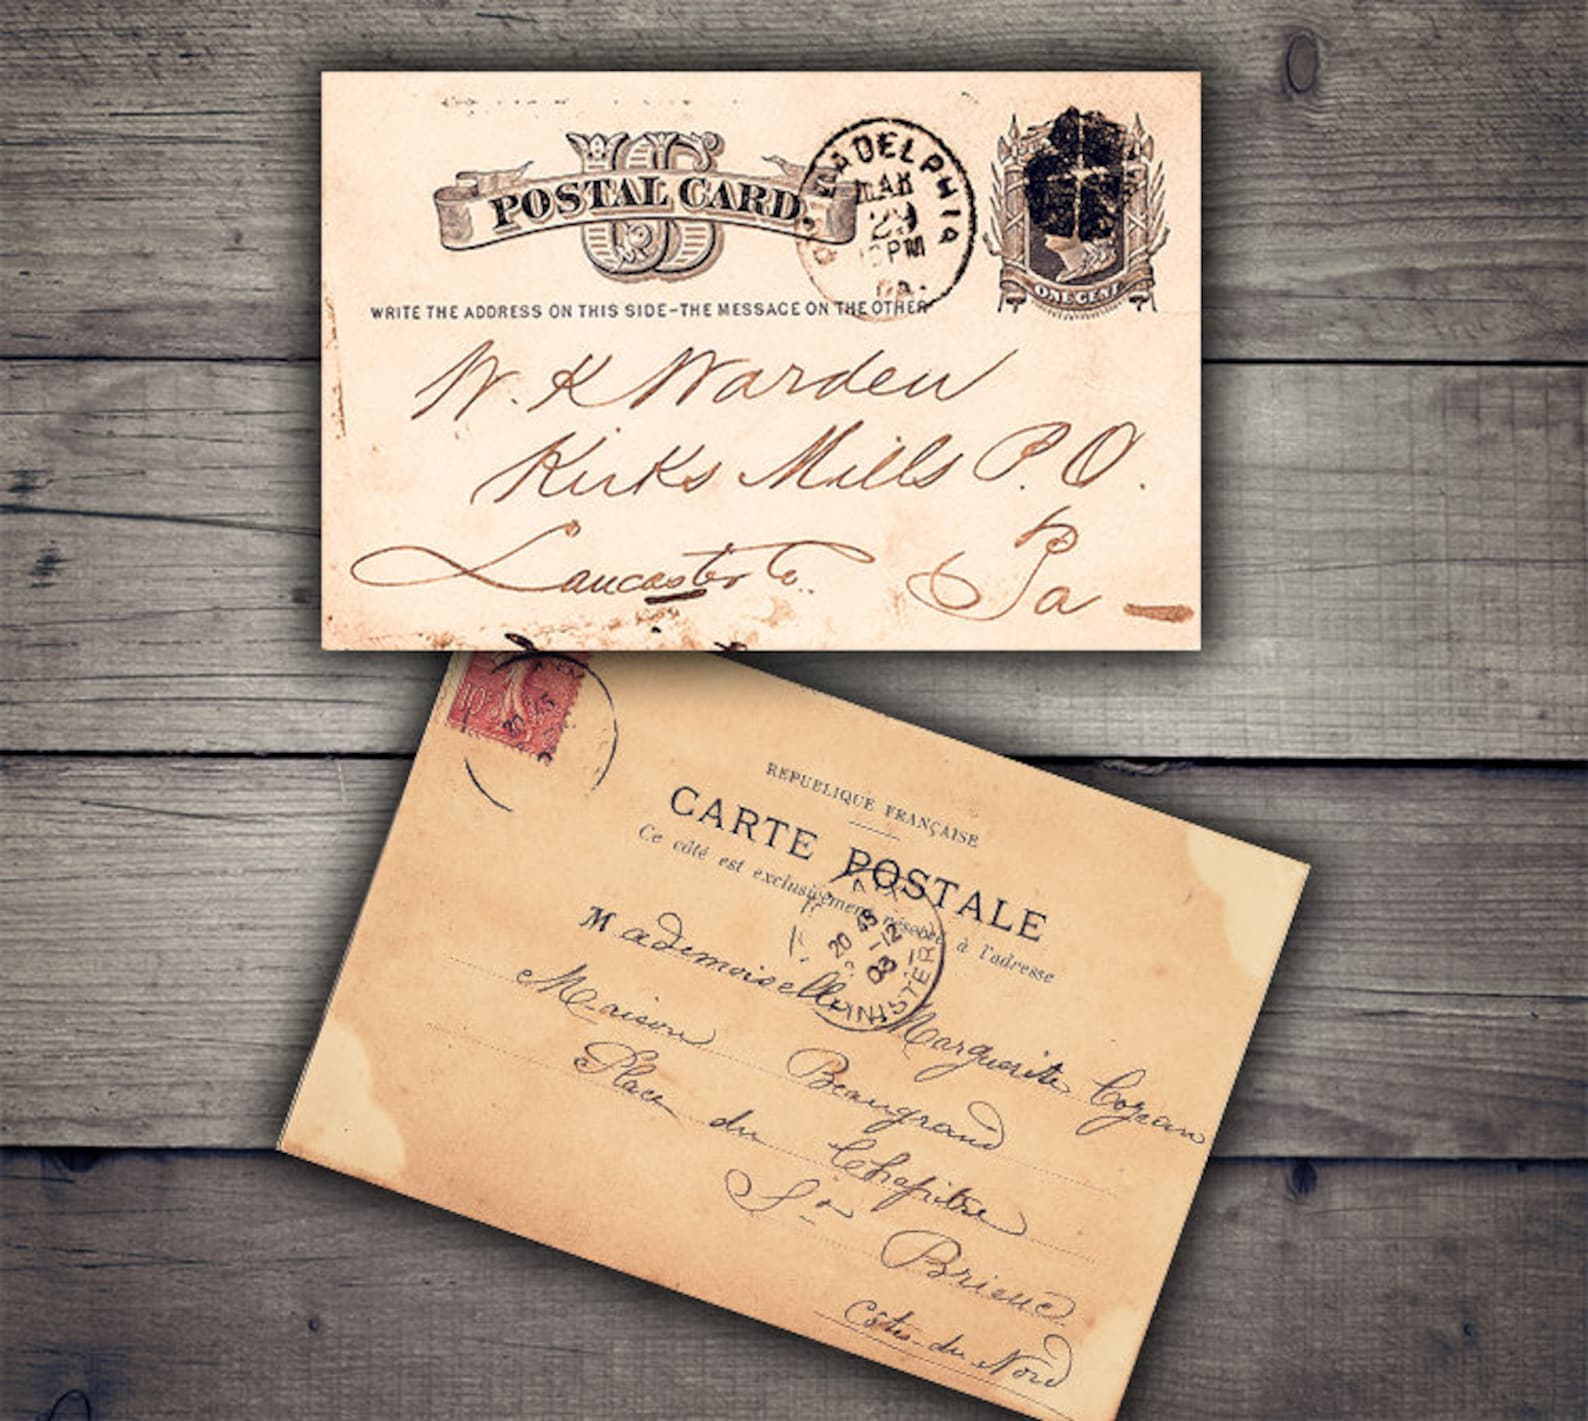 US
POSTAL CARD.
PHILADELPHIA
MAR
29
PM
PA.
ONE CENT
WRITE THE ADDRESS ON THIS SIDE–THE MESSAGE ON THE OTHER
W. K Warden
Kirks Mills P. O.
Lancaster Co. Pa
10
REPUBLIQUE FRANÇAISE
CARTE POSTALE
Ce côté est exclusivement réservé à l'adresse
20
-12
03
FINISTÈRE
Mademoiselle Marguerite Cozean
Maison Beaugrand
Place du Chapitre
St Brieuc
Côtes-du-Nord